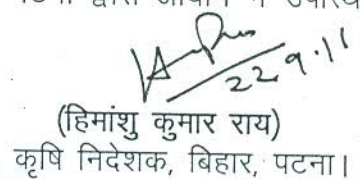 22.9.11
(हिमांशु कुमार राय)
कृषि निदेशक, बिहार, पटना।